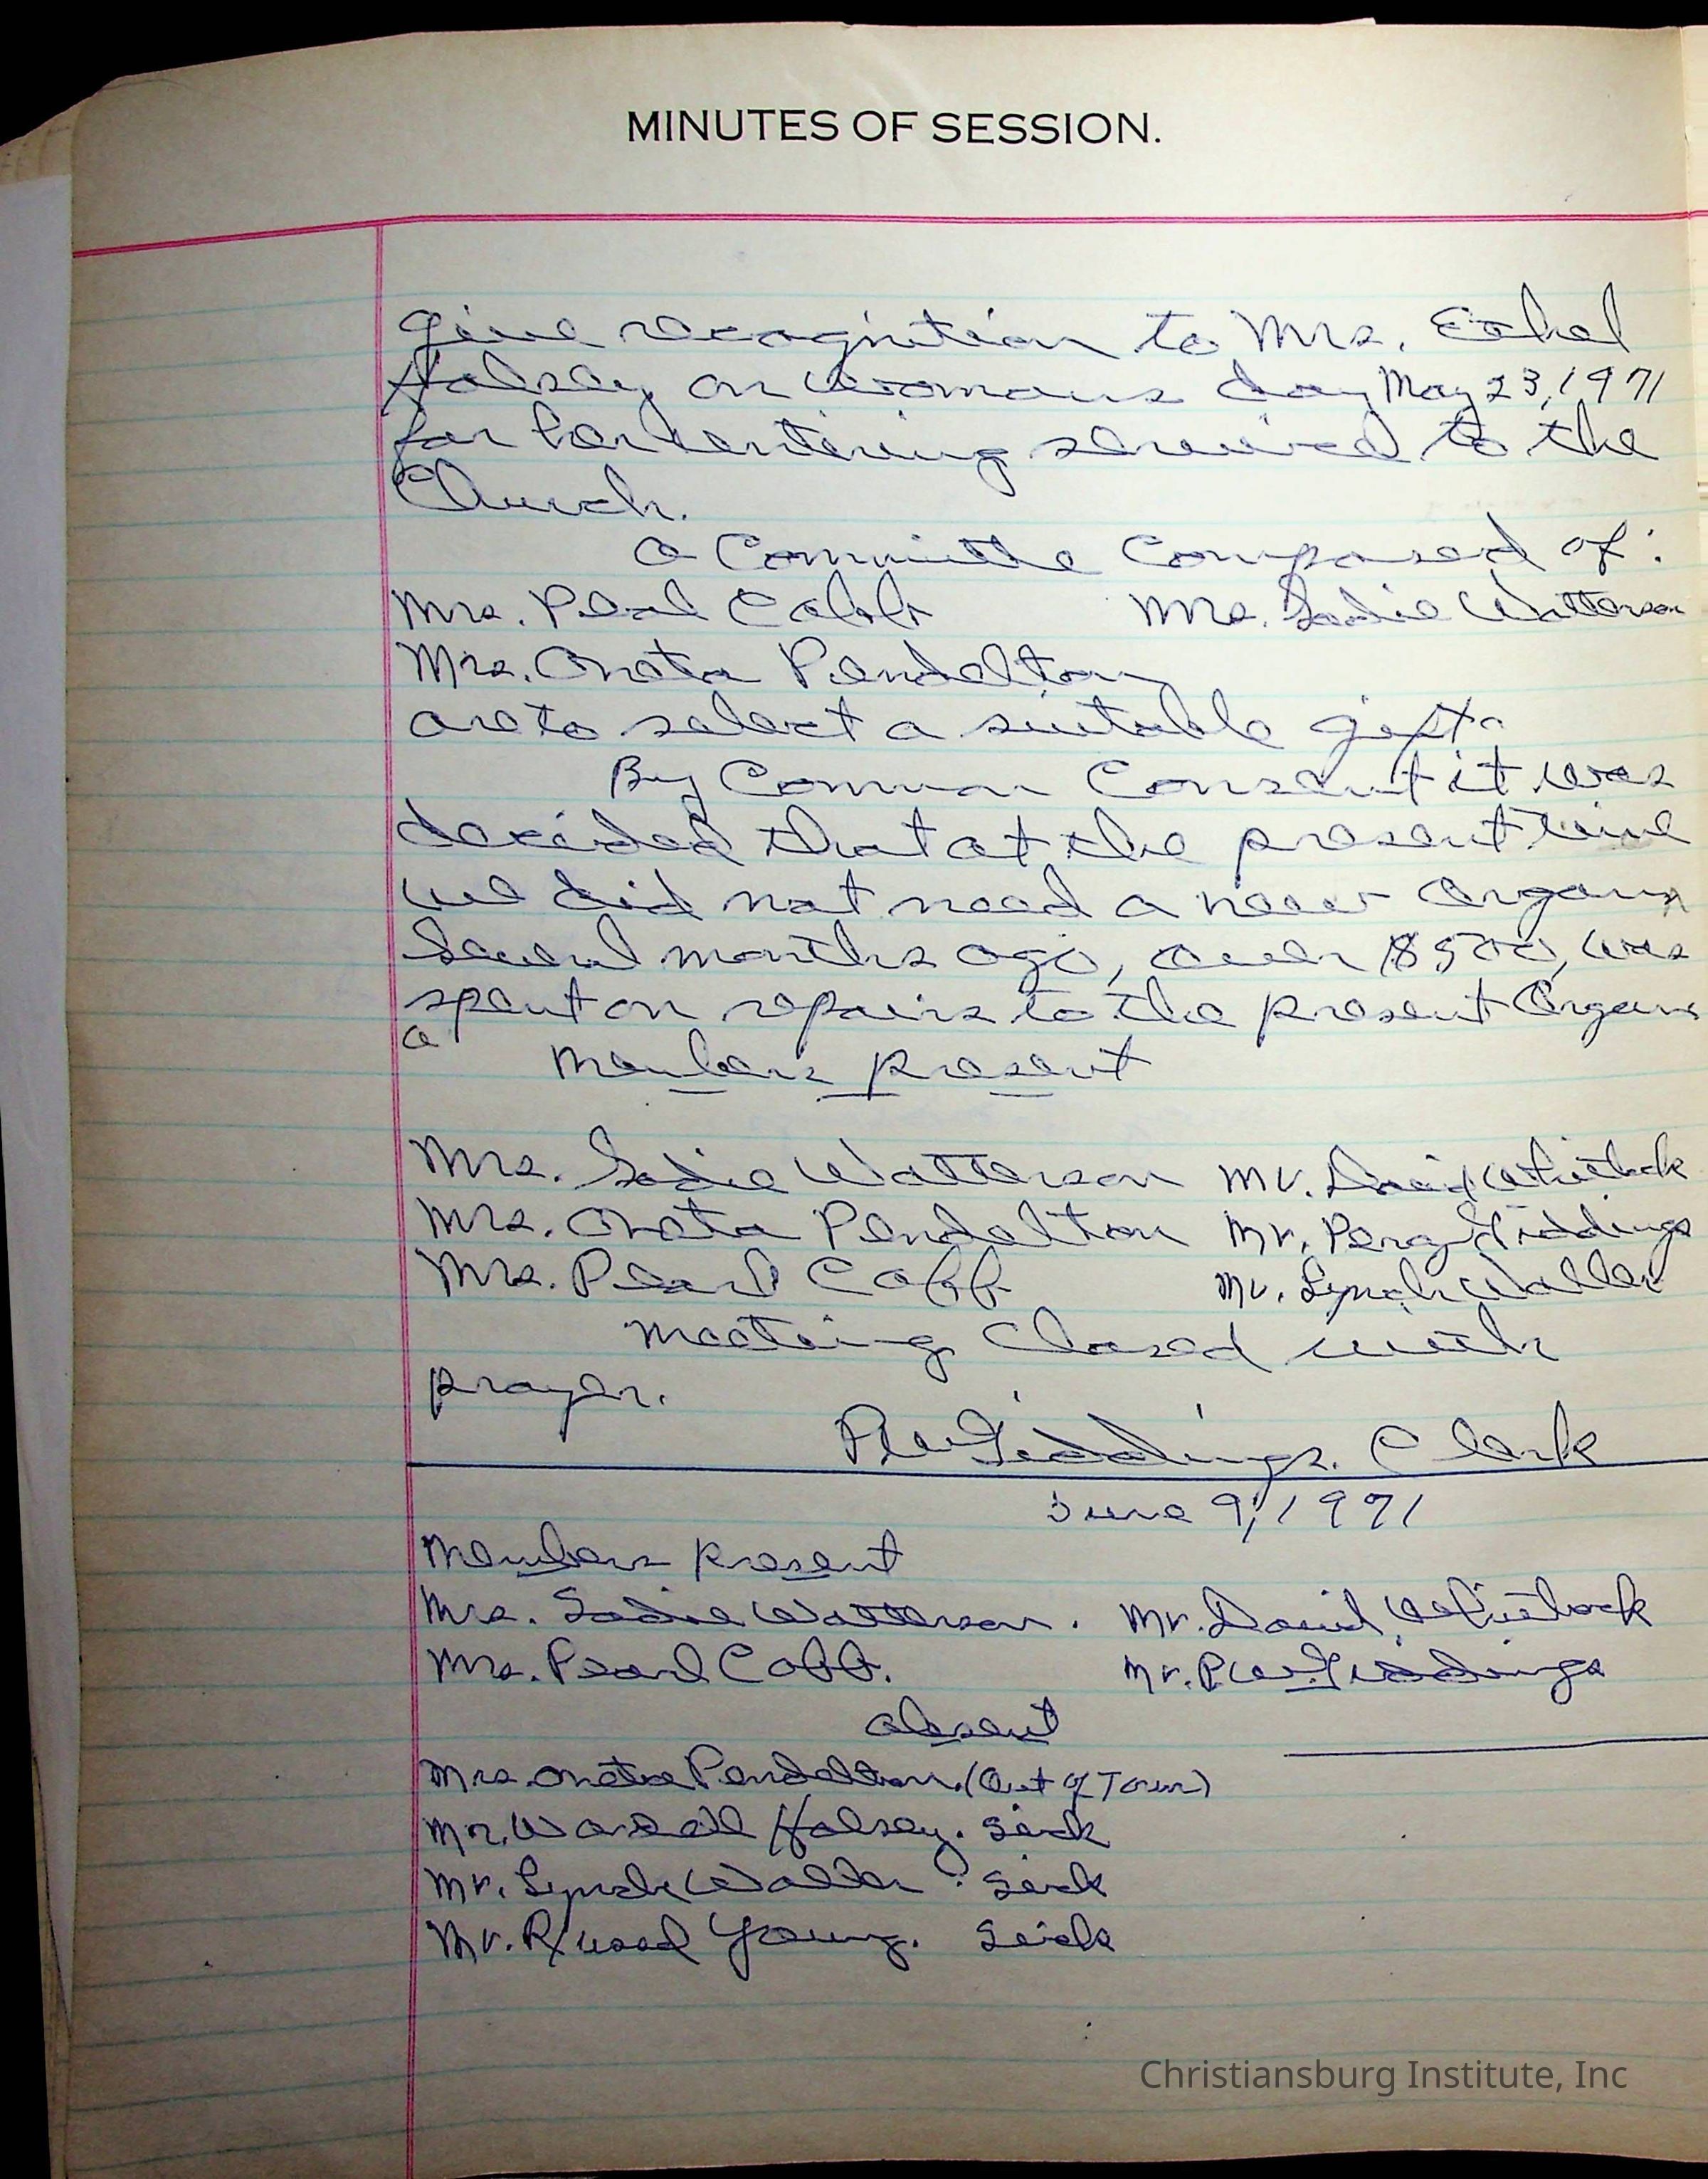 MINUTES OF SESSION.
give recognition to Mrs. Ethel
Halsey on Womans day May 23, 1971
for her serviced to the
Church.
a Committe Composed of:
Mrs. Pearl Cobb Mrs. Sadie Watterson
Mrs. Oneta Pendelton
are to select a suitable gift.
By Common Consent it was
decided that at the present time
we did not need a new Organ
Several months ago, over $500, was
spent on repairs to the present Organ
a
Members present
Mrs. Sadie Watterson Mr. David Whitlock
Mrs. Oneta Pendelton Mr. Percy Giddings
Mrs. Pearl Cobb Mr. Lynch Waller
Meeting Closed with
prayer.
P.W. Giddings. Clerk
June 9, 1971
Members present
Mrs. Sadie Watterson. Mr. David Whitlock
Mrs. Pearl Cobb. Mr. P.W. Giddings
absent
Mrs. Oneta Pendelton. (Out of Town)
Mr. Halsey. Sick
Mr. Lynch Waller. Sick
Mr. Young. Sick
Christiansburg Institute, Inc